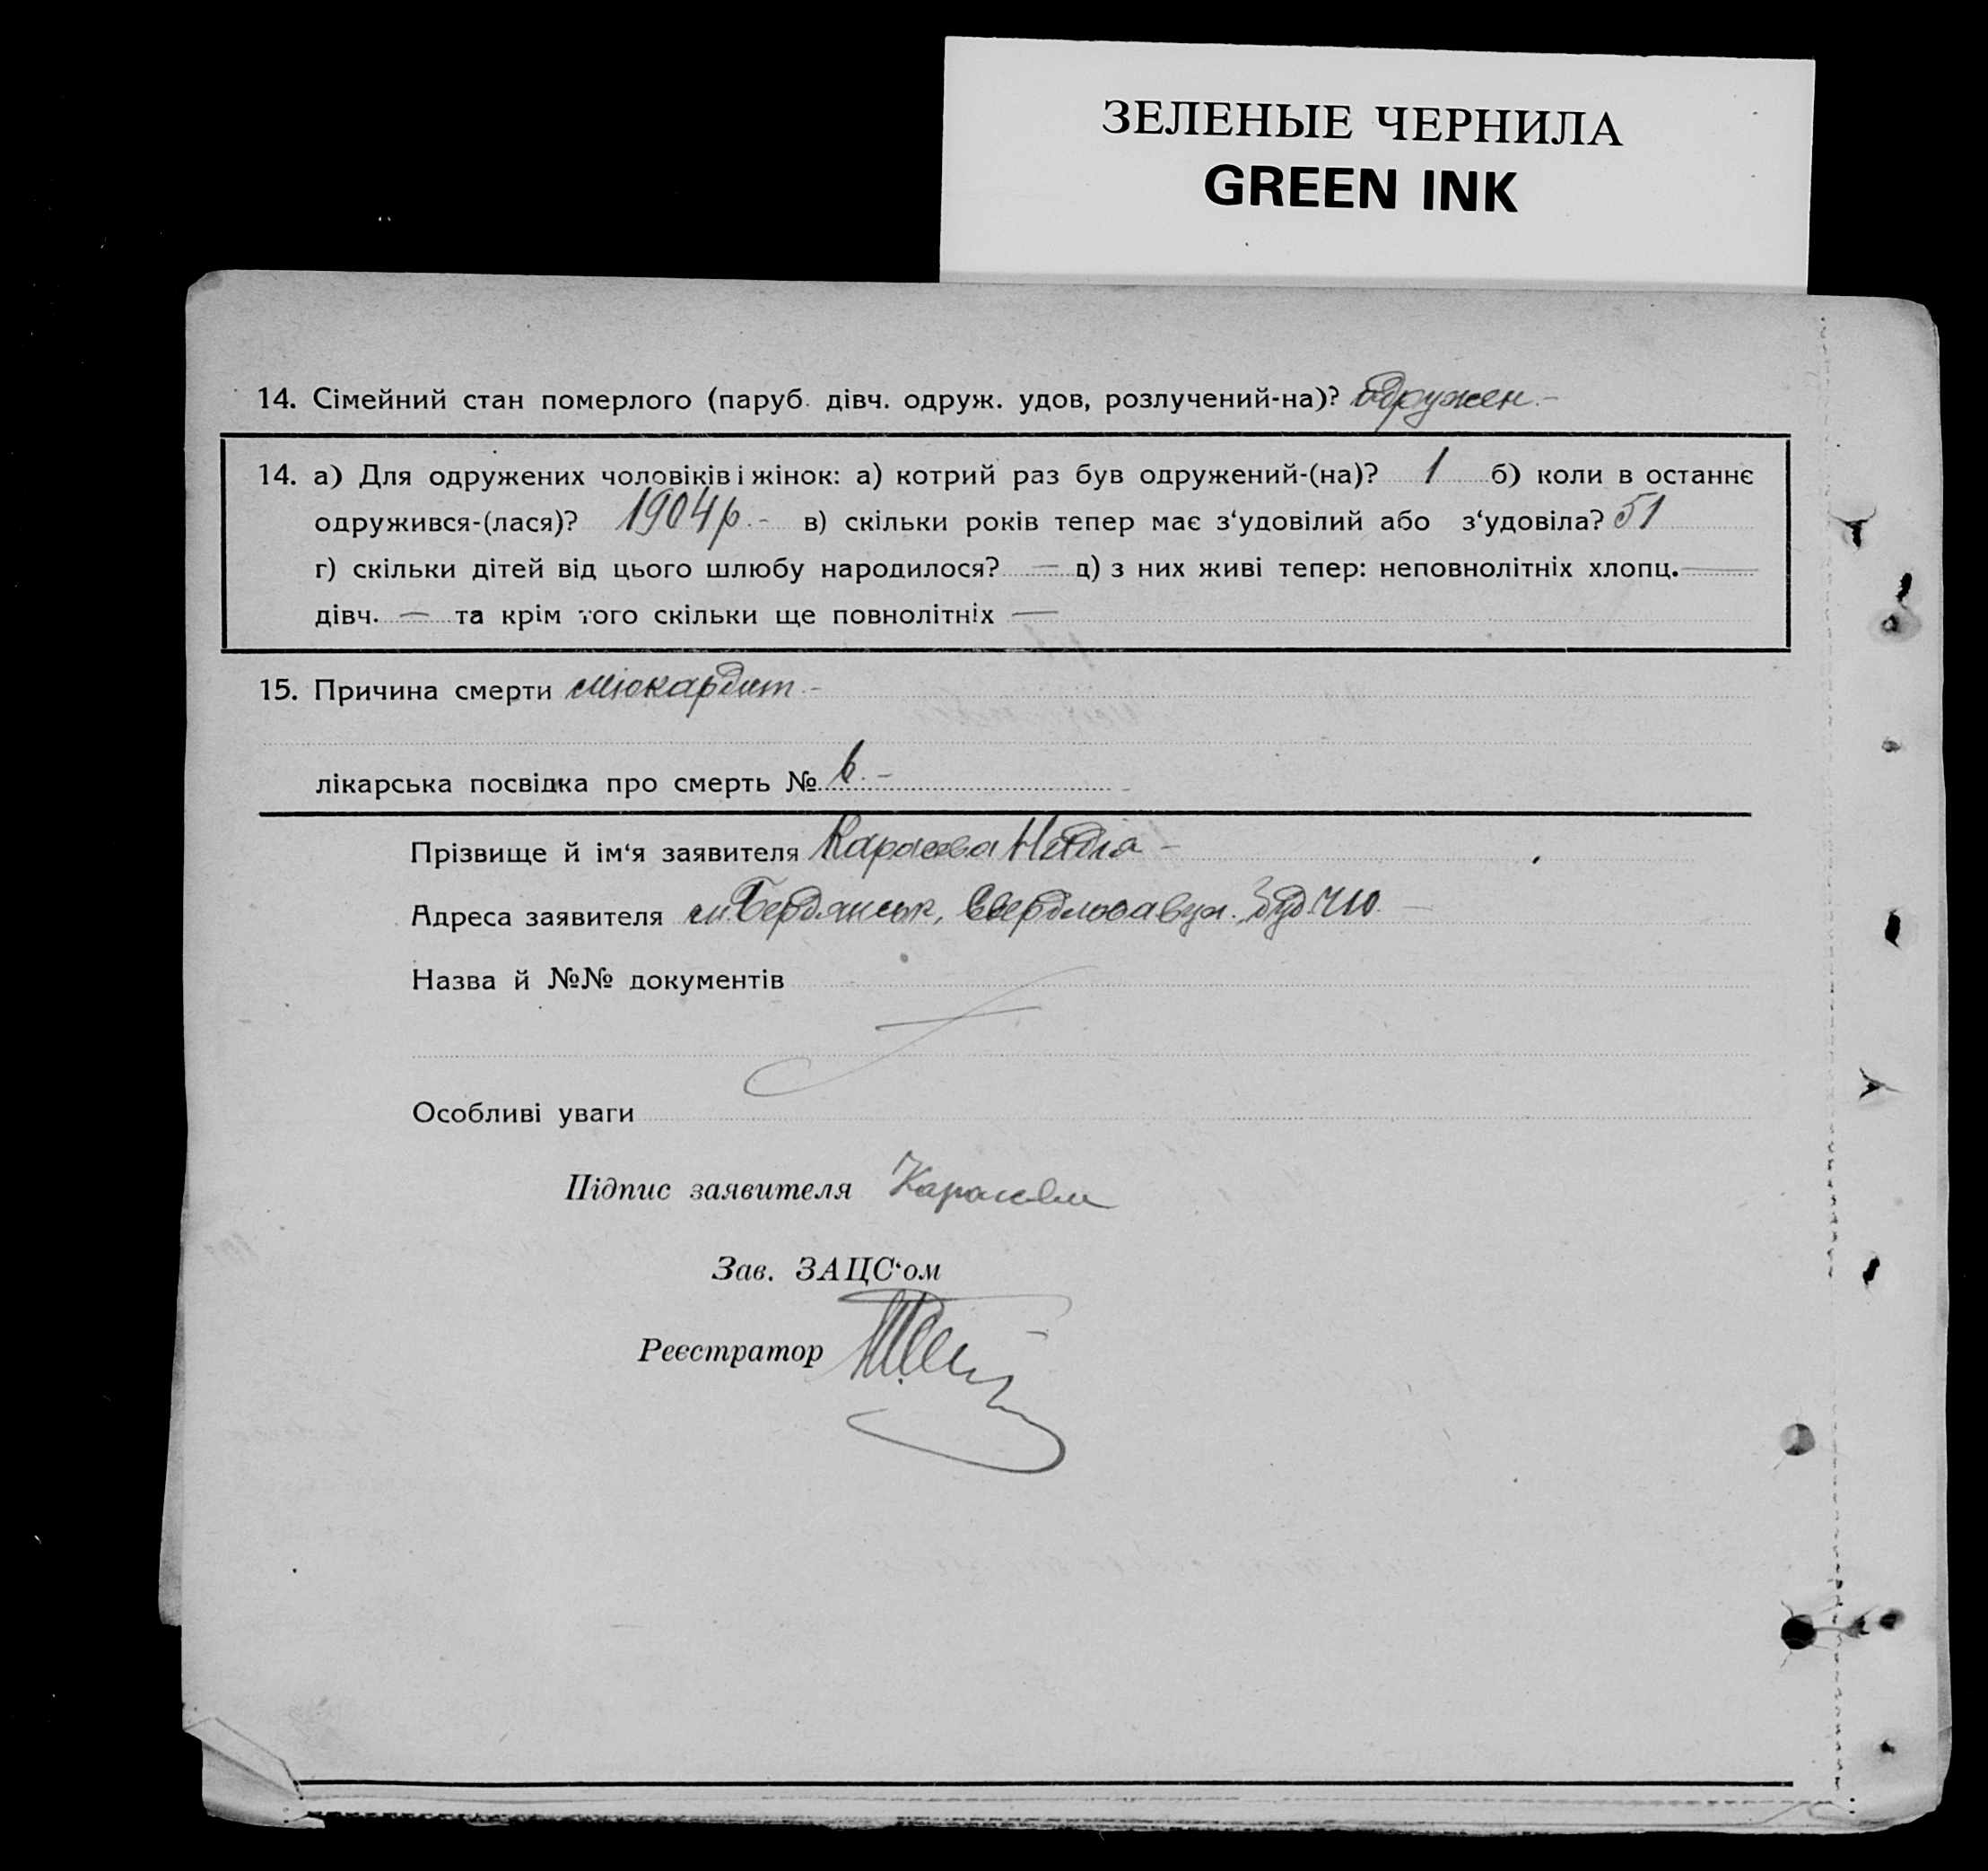 ЗЕЛЕНЫЕ ЧЕРНИЛА
GREEN INK
14. Сімейний стан померлого (паруб. дівч. одруж. удов, розлучений-на)? одружен. -
14. а) Для одружених чоловіків і жінок: а) котрий раз був одружений-(на)? 1 б) коли в останнє
одружився-(лася)? 1904 р. - в) скільки років тепер має з‘удовілий або з‘удовіла? 51
г) скільки дітей від цього шлюбу народилося? — д) з них живі тепер: неповнолітніх хлопц. —
дівч. — та крім того скільки ще повнолітніх —
15. Причина смерти міокардит -
лікарська посвідка про смерть № 6. -
Прізвище й ім‘я заявителя Карасева -
Адреса заявителя м. Бердянськ, Свердлова вул. буд.
Назва й №№ документів
Особливі уваги
Підпис заявителя Карасева
Зав. ЗАЦС‘ом
Реєстратор